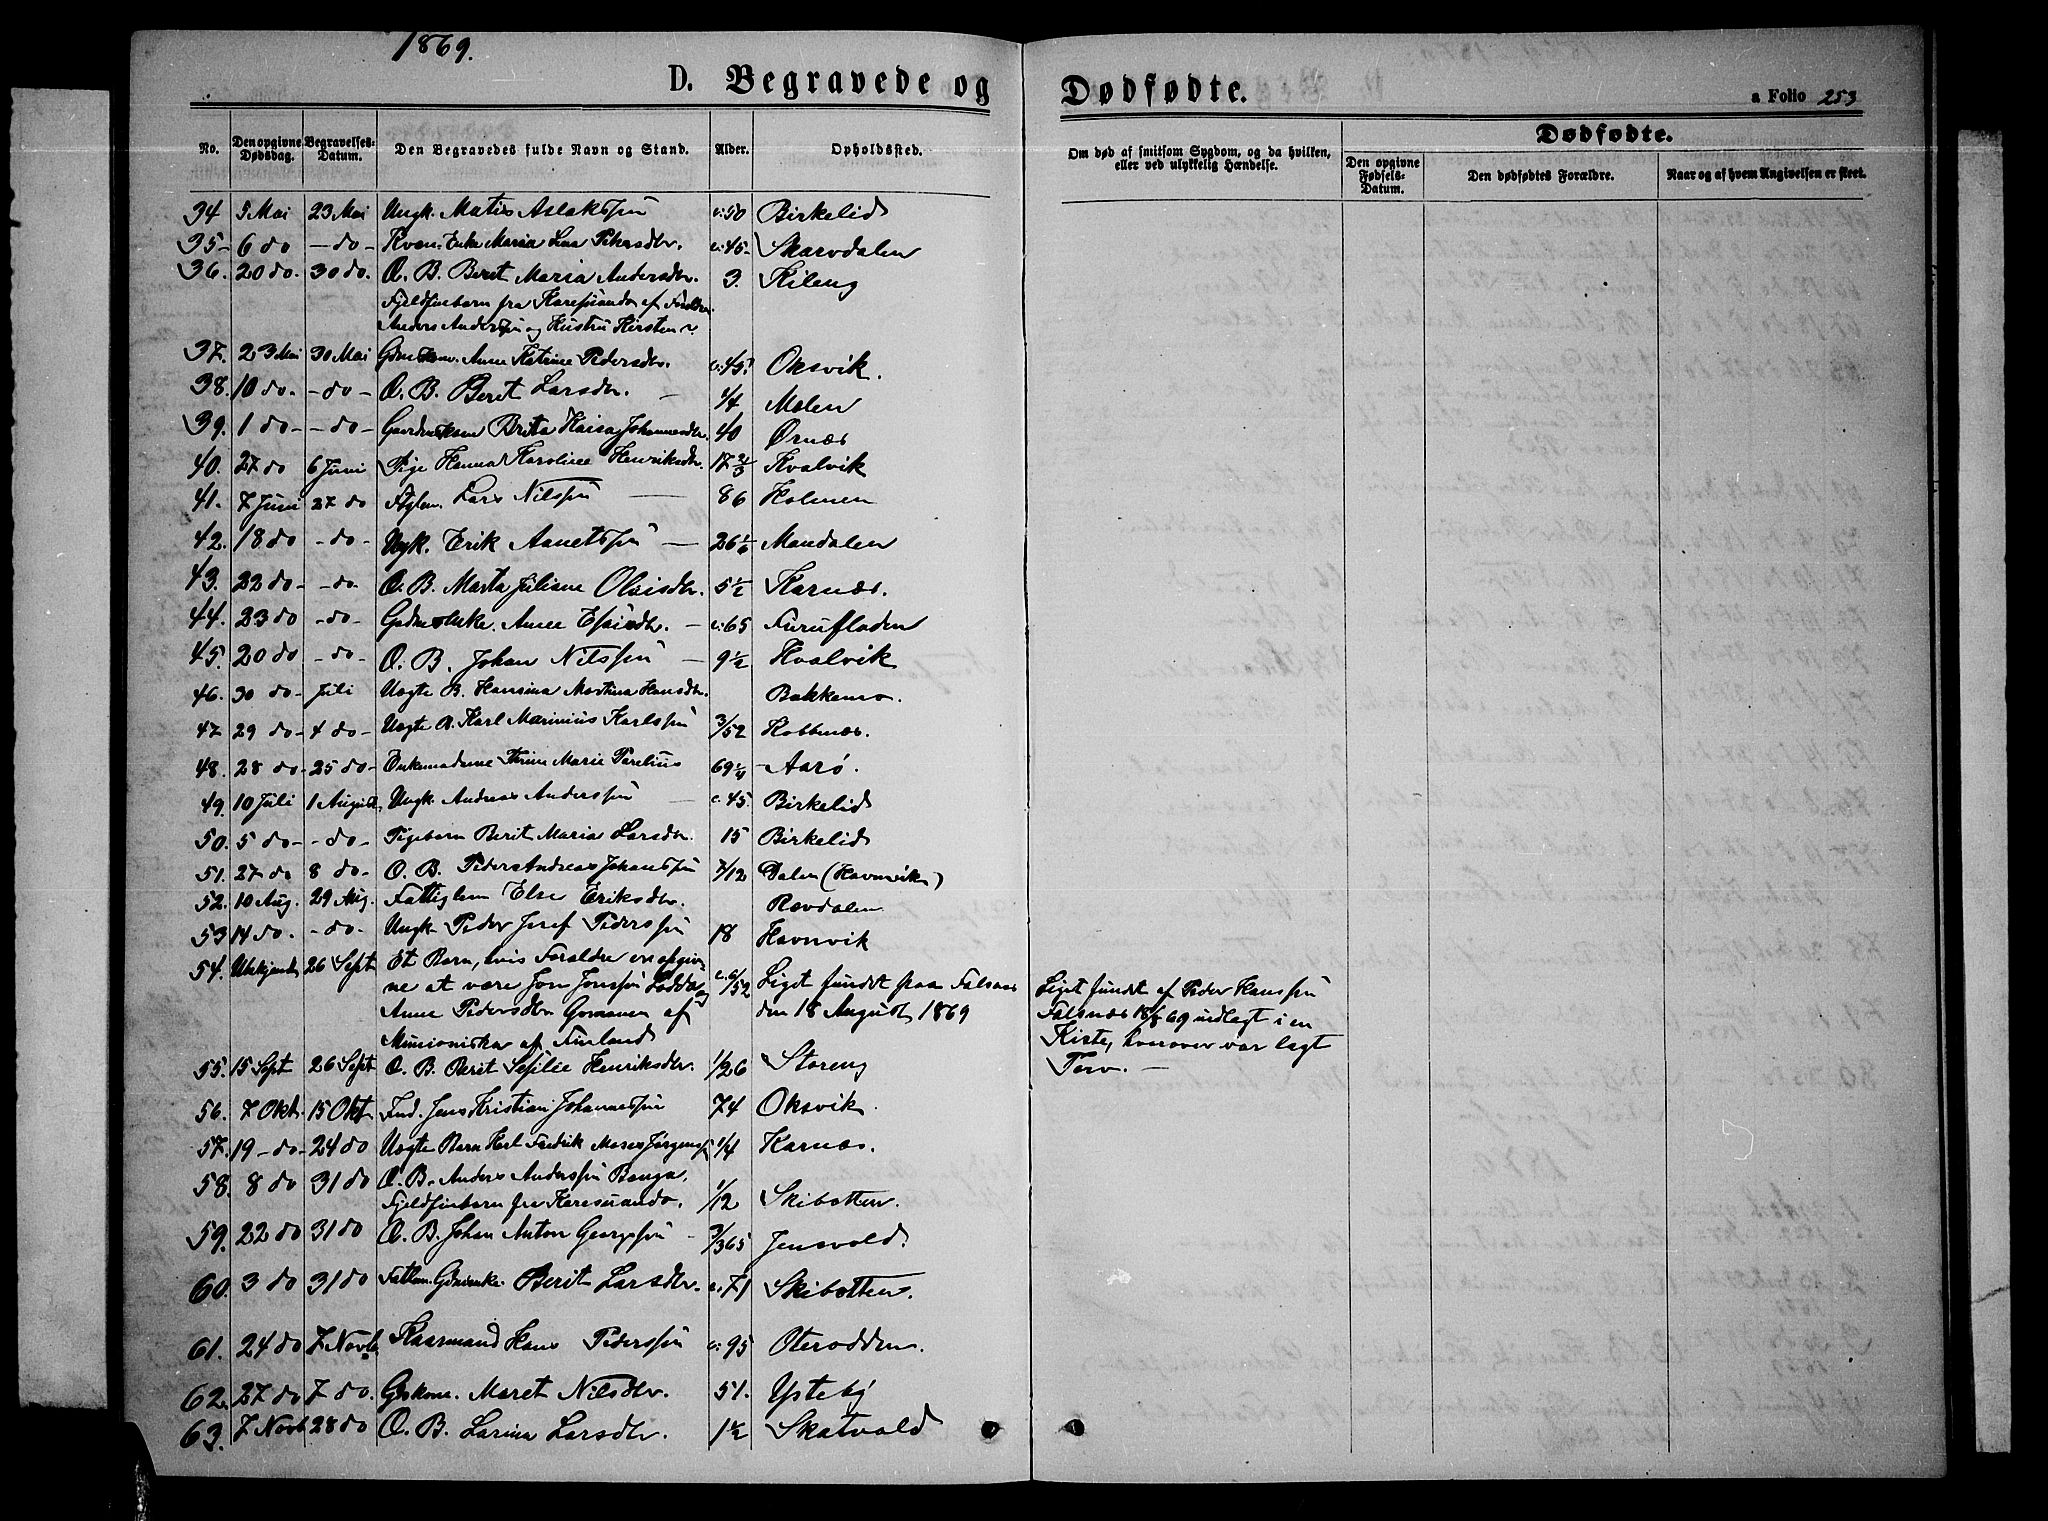 1869.
D. Begravede og Dødfødte.
a Folio 253
No. Den opgivne Dødsdag. Begravelses-Datum. Den Begravedes fulde Navn og Stand. Alder. Opholdssted. Om død af smitsom Sygdom, og da hvilken, eller ved ulykkelig Hændelse. Dødfødte. Den opgivne Fødsels-Datum. Den dødfødtes Forældre. Naar og af hvem Angivelsen er skeet.
34 5 Mai 23 Mai Ungk. Matis Aslaksen c. 50 Birkelid
35 6 do - do - Kven. Enke Maria Lisa Petersdtr. c. 45 Skarvdalen
36. 20 do. 30 do. Æ. B. Berit Maria Andersdtr. 3. Kileng
Fjeldfinbarn fra Karesuando af Foreldre
Anders Anderssøn og Hustru Kirsten
37. 23 Mai 30 Mai Gdmskone. Anne Katrine Pedersdtr. c. 45. Oksvik.
38. 10 do. - do - Æ. B. Berit Larsdtr. 1/4 Molen
39. 1 do - - do - Gaardmskone Brita Kaisa Johannesdtr. 40 Ørnæs
40. 27 do 6 Juni Pige Hanna Karoline Henriksdtr. 17 2/3 Kvalvik
41. 7 Juni 27 do Føglem. Lars Nilssøn 86 Holmen
42. 18 do - do - Ungk. Erik Anetssøn 26 1/6 Mandalen
43. 22 do - - do. Æ. B. Marta Juliane Olsdtr. 5 1/2 Karnæs.
44. 23 do - do - Gdmdsenke. Anne Esaisdtr. c. 65 Furufladen
45. 20 do - do - Æ. B. Johan Nilssøn 9 1/2 Kvalvik
46. 30 do - Juli Uægte B. Hansina Martina Hansdtr. Bakkemo.
47 29 do - 4 do - Uægte B. Karl Marinius Karlssøn 3/52 Kobbnæs.
48. 28 do - 25 do - Enkemadame Trine Marie Parelius 69 1/4 Aarø.
49. 10 Juli 1 August Ungk. Andreas Anderssøn c. 45. Birkelid
50. 5 do - - do - Pigebarn Berit Maria Larsdtr. 15 Birkelid
51. 27 do 8 do. Æ. B. Peder Andreas Johanssøn 7/12 Dalen (Havnvik)
52. 10 Aug. 29 Aug. Fattiglem Else Eriksdtr. Rævdalen
53 14 do. - do. Ungk. Peder Josef Pederssøn 18 Havnvik
54. Ubekjendt 26 Sept Et Barn, hvis Forældre er opgiv-
ne at være Jon Jonssøn Lodda og
Anne Pedersdtr Gomman af
Munioniska af Finland
c. 6/52 Liget fundet paa Falsnæs
den 18 August 1869
Liget fundet af Peder Hanssøn
Falsnæs 18/8 69 indlagt i en
Kiste, hvorover var lagt
Torv.
55. 15 Sept 26 Sept Æ. B. Berit Sesilie Henriksdtr. 1/26 Storeng
56. 7 Okt. 15 Okt. Ind. Jens Kristian Johannessøn 74 Oksvik.
57. 19 - do - 24 do Uægte Barn Karl Fredrik Moses Jørgenssøn 1/4 Karnæs.
58. 8 do 31 do Æ. B. Anders Anderssøn Banga.
Fjeldfinbarn fra Karesuando. 1/12 Skibotten.
59. 22 do 31 do Æ. B. Johan Anton Georgssøn 3/365 Jensvold.
60. 3 do 31 do Fatlem. Gdmenke Berit Larsdtr. c. 71 Skibotten.
61. 24 do 7 Novb. Kaarmand Hans Pederssøn c. 95 Oterodden.
62. 27 do 7 do. Gkone. Maret Nilsdtr. 51. Ysteby
63. 7 Novb 28 do Æ. B. Larina Larsdtr. 1 1/2 Skatvold